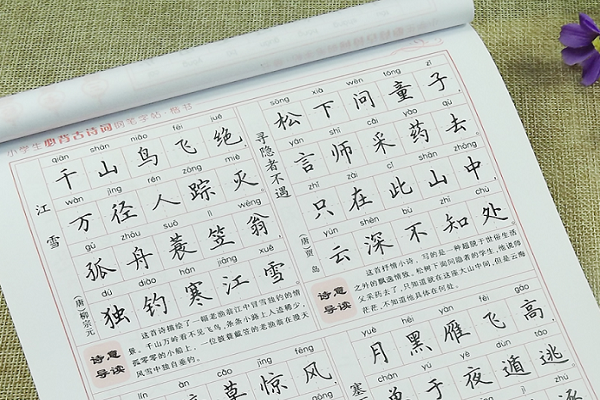 小学生必背古诗词钢笔字帖·楷书
江雪
(唐)柳宗元
qiān shān niǎo fēi jué
千山鸟飞绝，
wàn jìng rén zōng miè
万径人踪灭。
gū zhōu suō lì wēng
孤舟蓑笠翁，
dú diào hán jiāng xuě
独钓寒江雪。
诗意导读
这首诗描绘了一幅老渔翁江中冒雪独钓的情
景。千山万岭看不见飞鸟，条条小路上人迹稀少，
孤零零的小船上，一位披蓑戴笠的老渔翁在漫天
风雪中独自垂钓。
寻隐者不遇
(唐)贾岛
sōng xià wèn tóng zǐ
松下问童子，
yán shī cǎi yào qù
言师采药去。
zhǐ zài cǐ shān zhōng
只在此山中，
yún shēn bù zhī chù
云深不知处。
诗意导读
这首抒情小诗，写的是一种超脱于世俗生活
之外的飘逸情致。松树下询问隐者的学生，他说师
父采药去了，只知道就在这座大山中间，但是云海
茫茫，不知道他具体在何处。
cǎo jīng fēng
草惊风
yuè hēi yàn fēi gāo
月黑雁飞高，
塞
单于夜遁逃